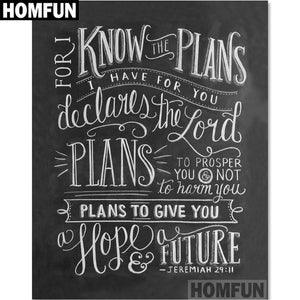 HOMFUN
FOR I
KNOW THE PLANS
I HAVE FOR YOU
declares the Lord
PLANS
TO PROSPER
YOU & NOT
to harm you
PLANS TO GIVE YOU
a Hope &
a FUTURE
– JEREMIAH 29:11
HOMFUN